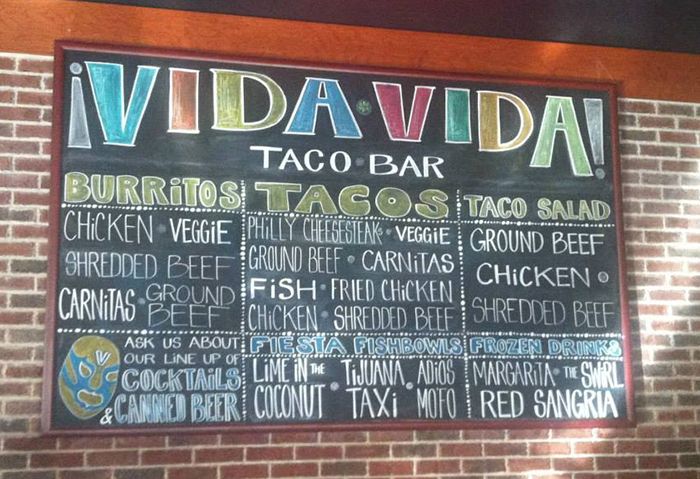 ¡VIDA·VIDA!
TACO·BAR
BURRITOS
CHICKEN · VEGGIE
SHREDDED BEEF
CARNITAS · GROUND BEEF
TACOS
PHILLY CHEESESTEAK · VEGGIE
GROUND BEEF · CARNITAS
FISH · FRIED CHICKEN
CHICKEN · SHREDDED BEEF
TACO SALAD
GROUND BEEF
CHICKEN ·
SHREDDED BEEF
V
ASK US ABOUT
OUR LINE UP OF
COCKTAILS
& CANNED BEER
FIESTA FISHBOWLS
LIME IN THE COCONUT · TIJUANA TAXI · ADIOS MOFO
FROZEN DRINKS
MARGARITA · THE SWIRL
RED SANGRIA